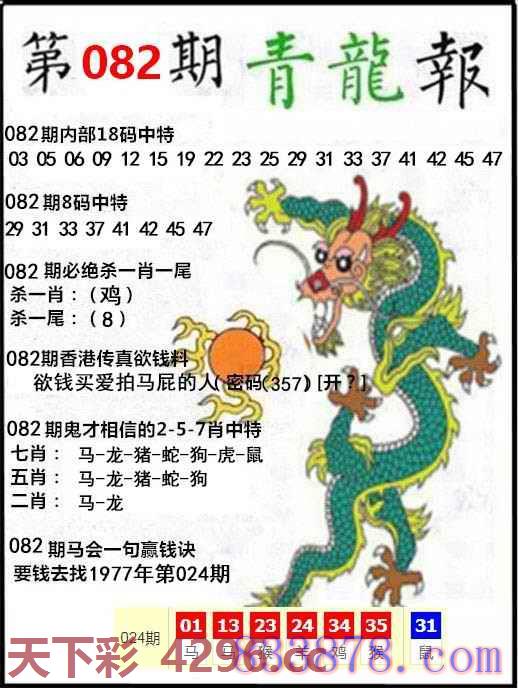 第082期青龍報
082期内部18码中特
03 05 06 09 12 15 19 22 23 25 29 31 33 37 41 42 45 47
082期8码中特
29 31 33 37 41 42 45 47
082期必绝杀一肖一尾
杀一肖：(鸡)
杀一尾：(8)
082期香港传真欲钱料
欲钱买爱拍马屁的人(密码(357)[开?]
082期鬼才相信的2-5-7肖中特
七肖： 马-龙-猪-蛇-狗-虎-鼠
五肖： 马-龙-猪-蛇-狗
二肖： 马-龙
082期马会一句赢钱诀
要钱去找1977年第024期
024期 01 13 23 24 34 35 31
马 马 猴 羊 鸡 猴 鼠
天下彩 4296.cc